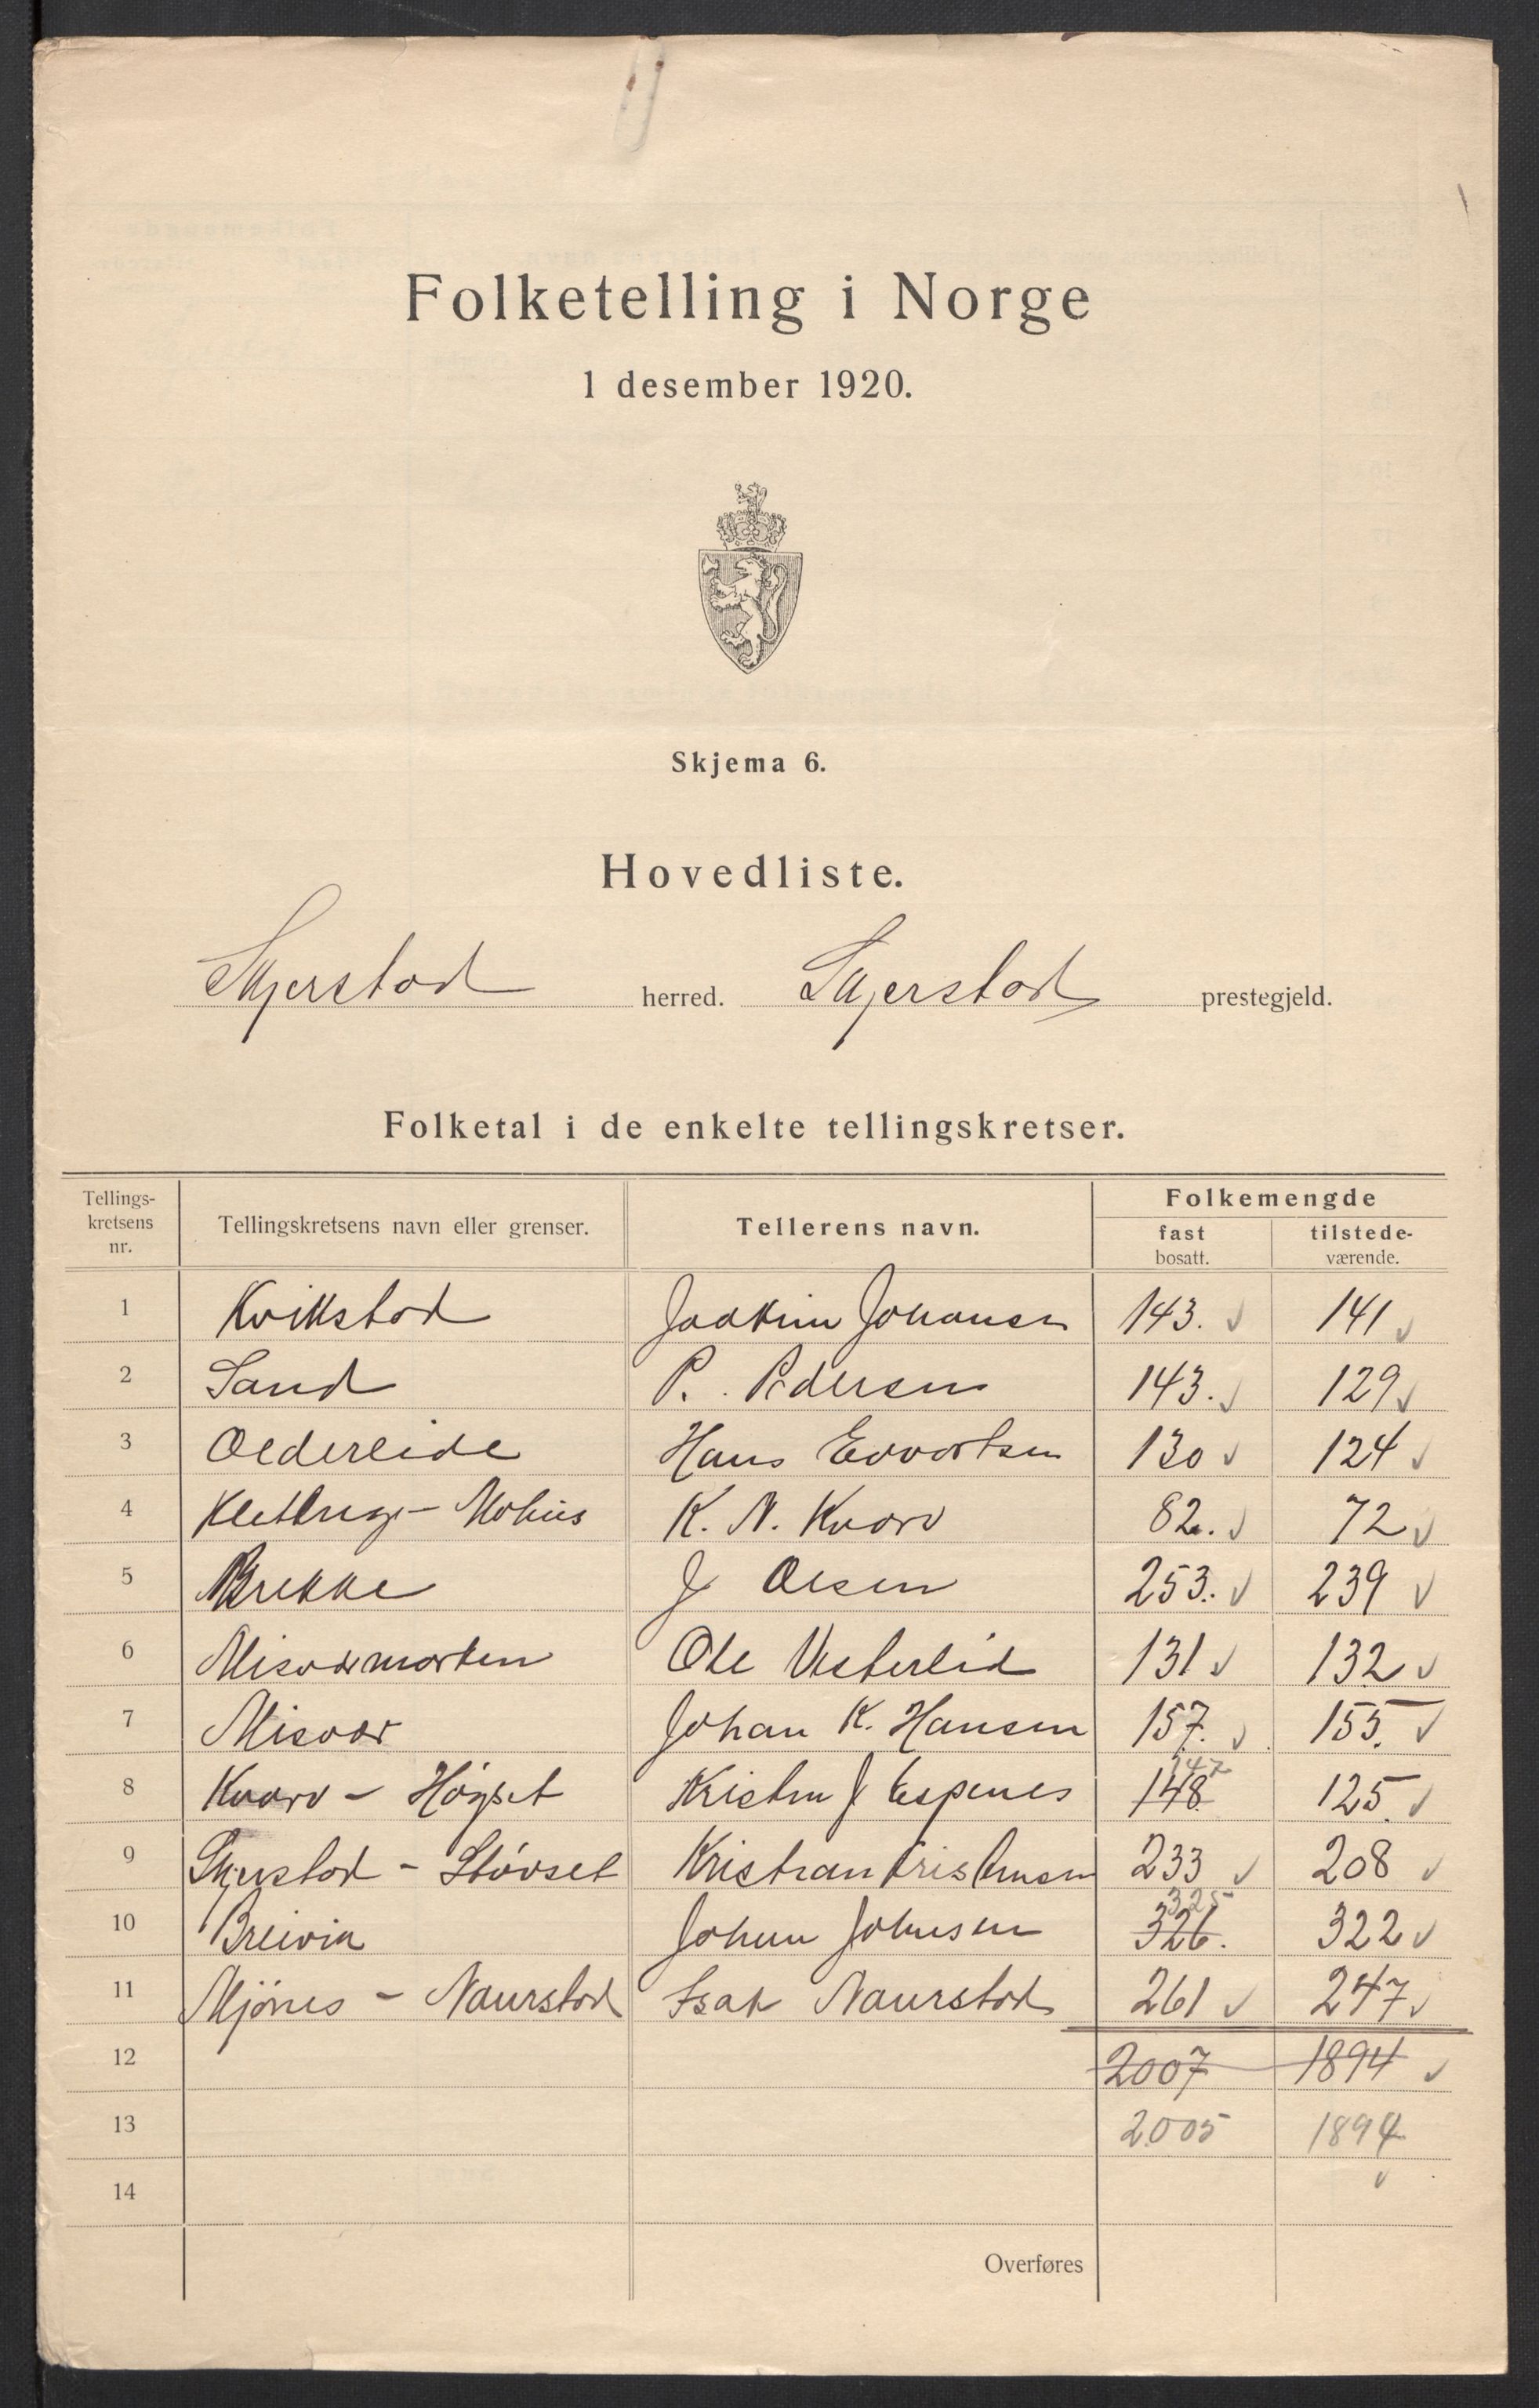 Folketelling i Norge
1 desember 1920.
Skjema 6.
Hovedliste.
Skjerstad herred. Skjerstad prestegjeld.
Folketal i de enkelte tellingskretser.
Tellings-kretsens nr. Tellingskretsens navn eller grenser. Tellerens navn. Folkemengde
fast bosatt. tilstede-værende.
1 Kvikstad Joakim Johansen 143. 141
2 Sand P. Pedersen 143. 129
3 Oldereide Hans Edvartsen 130 124
4 K. N. Kvarv 82. 72
5 Brekke J Olsen 253. 239
6 Misværmarken Ole Vesterlid 131 132
7 Misvær Johan K. Hansen 157. 155.
147
8 Kvarv - Høgset Kristen J Espenes 148 125
9 Skjerstad - Støvset Kristian Kristensen 233 208
325
10 Breivik Johan Johnsen 326. 322
11 Mjønes - Naurstad Isak Naurstad 261 247
12 2007 1894
13 2005 1894
14
Overføres